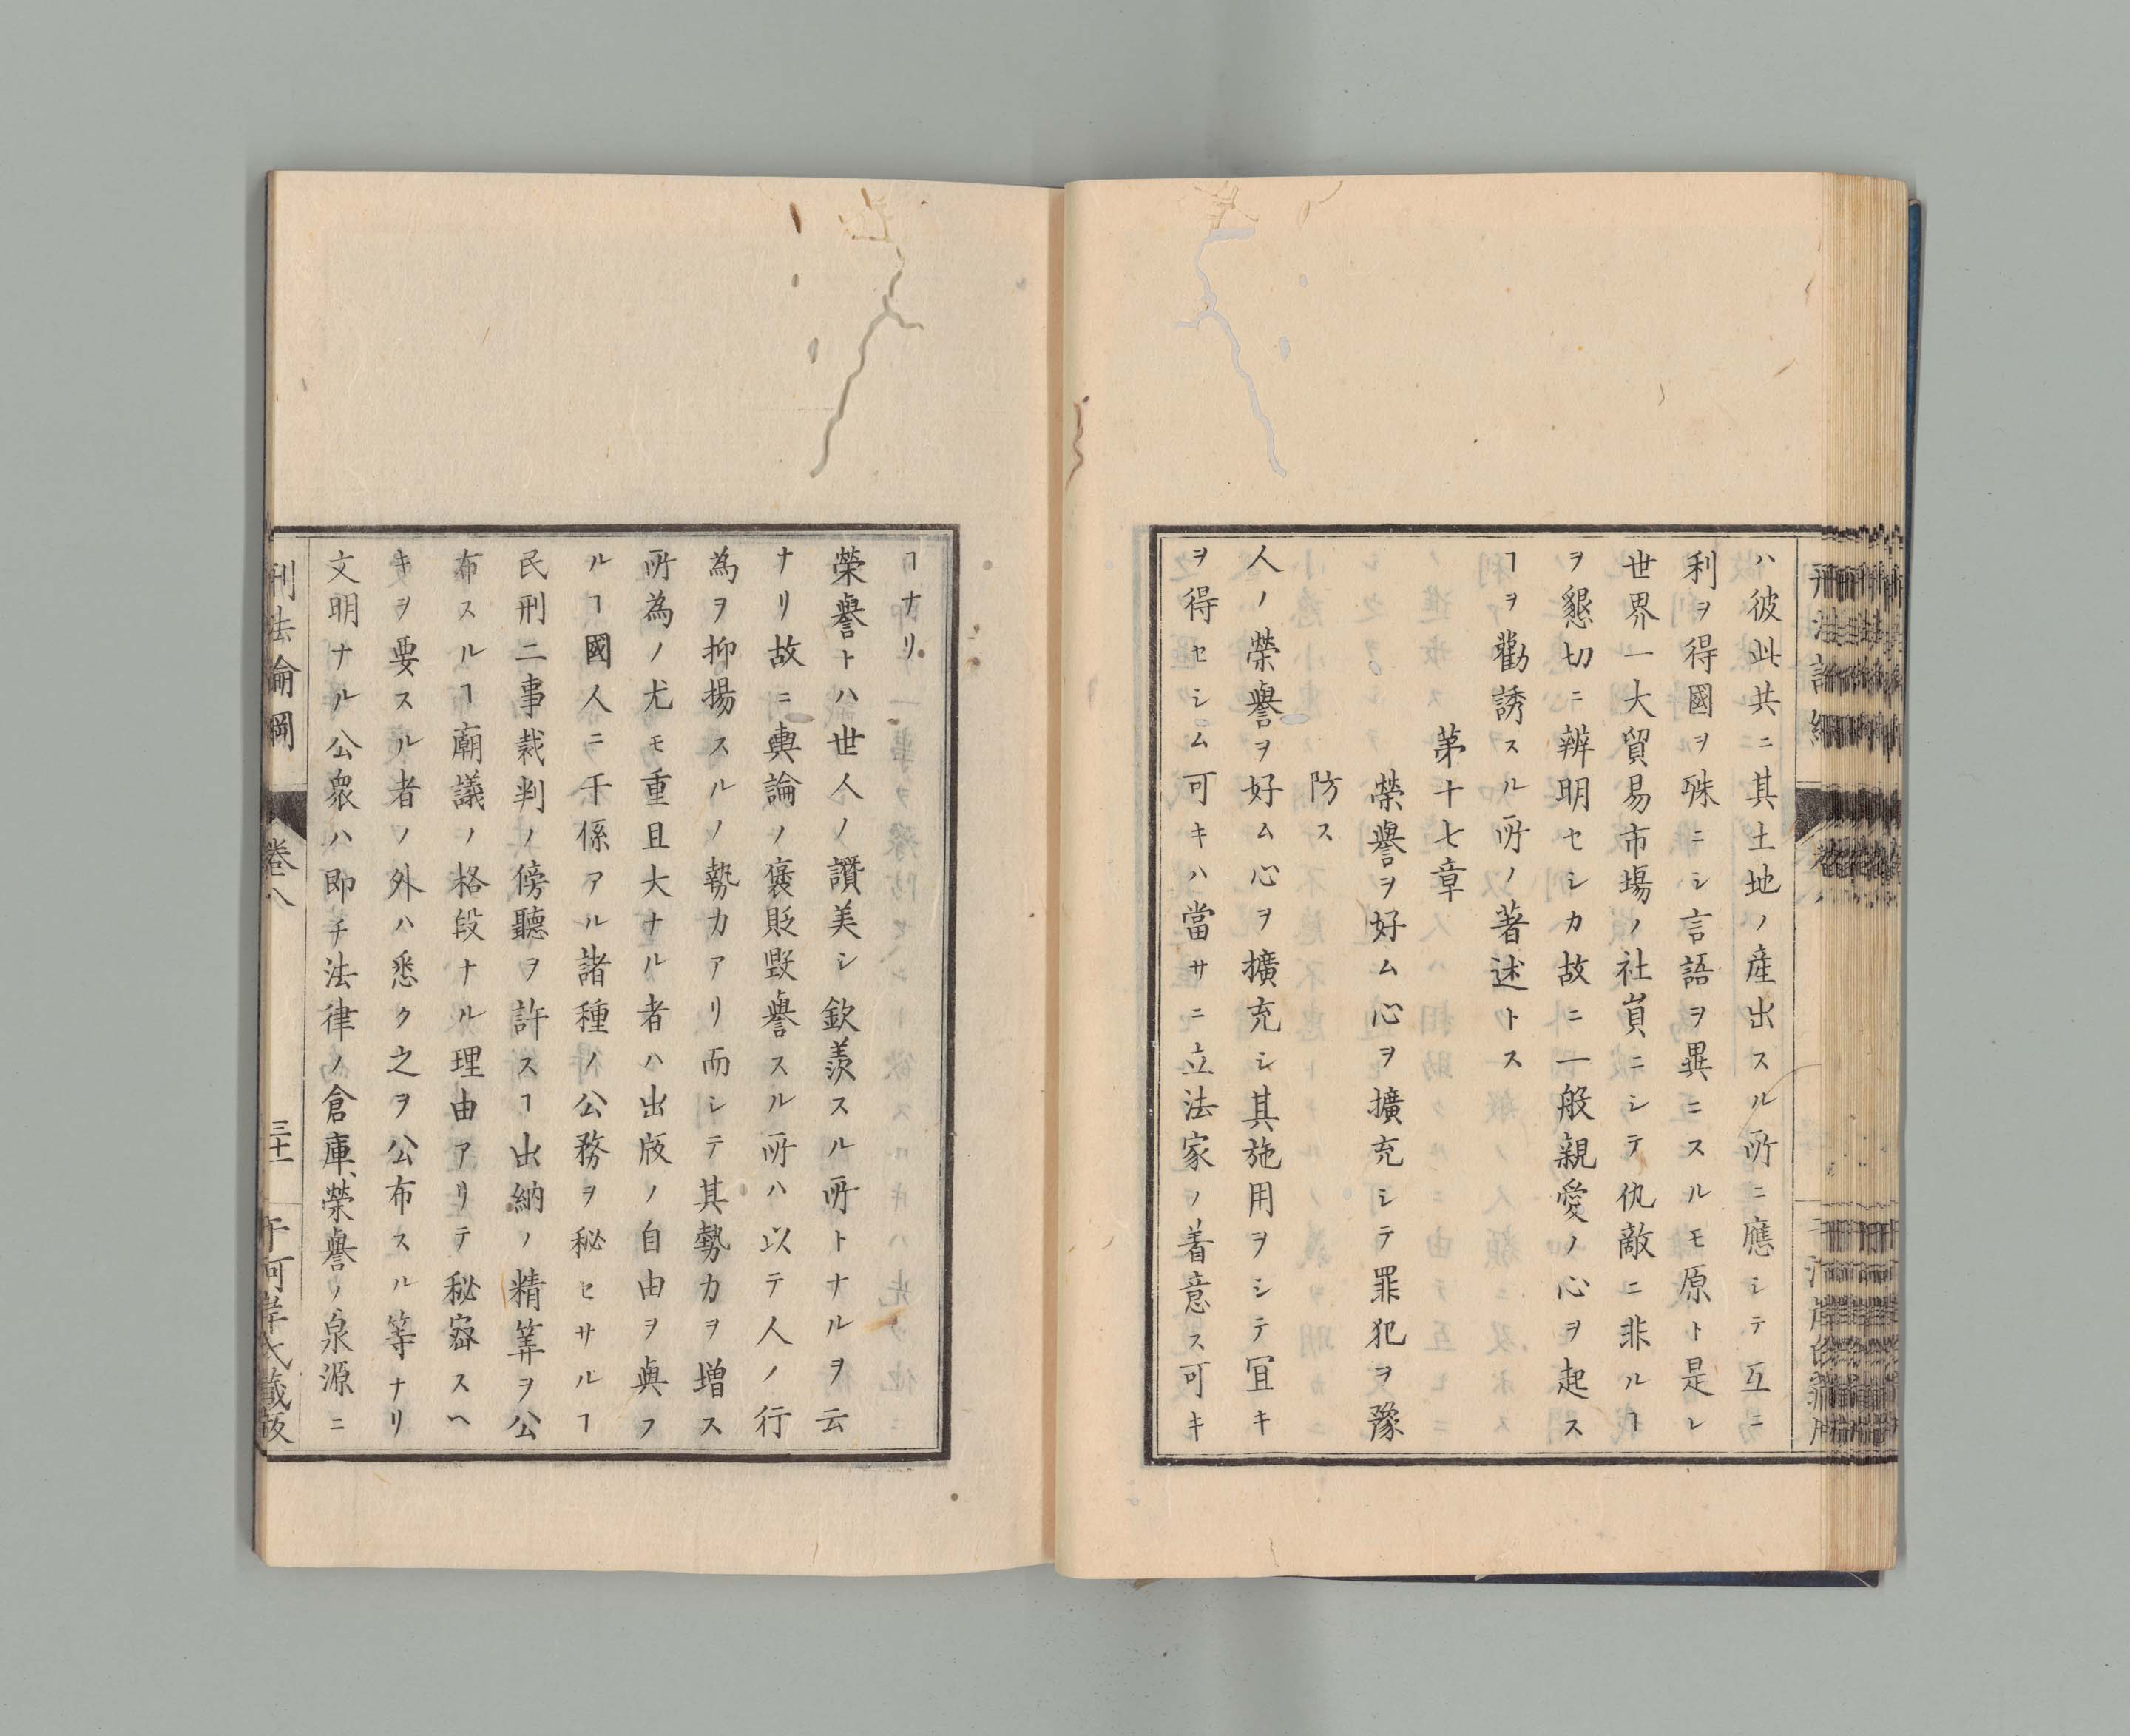 ハ彼此共ニ其土地ノ產出スル所ニ應シテ互ニ
利ヲ得國ヲ殊ニシ言語ヲ異ニスルモ原ト是レ
世界一大貿易市場ノ社員ニシテ仇敵ニ非ルヿ
ヲ懇切ニ辨明セシカ故ニ一般親愛ノ心ヲ起ス
ヿヲ勸誘スル所ノ著述トス
第十七章
榮譽ヲ好ム心ヲ擴充シテ罪犯ヲ豫
防ス
人ノ榮譽ヲ好ム心ヲ擴充シ其施用ヲシテ冝キ
ヲ得セシム可キハ當サニ立法家ノ着意ス可キ
ヿナリ
榮譽トハ世人ノ讚美シ欽羨スル所トナルヲ云
ナリ故ニ輿論ノ褒貶毀譽スル所ハ以テ人ノ行
為ヲ抑揚スルノ勢力アリ而シテ其勢力ヲ增ス
所為ノ尤モ重且大ナル者ハ出版ノ自由ヲ與フ
ルヿ國人ニ干係アル諸種ノ公務ヲ秘セサルヿ
民刑二事裁判ノ傍聽ヲ許スヿ出納ノ精筭ヲ公
布スルヿ廟議ノ格段ナル理由アリテ秘密スヘ
キヲ要スル者ノ外ハ悉ク之ヲ公布スル等ナリ
文明ナル公衆ハ即チ法律ノ倉庫、榮譽ノ泉源ニ
刑法論綱
卷八
三十一
于河岸氏藏版